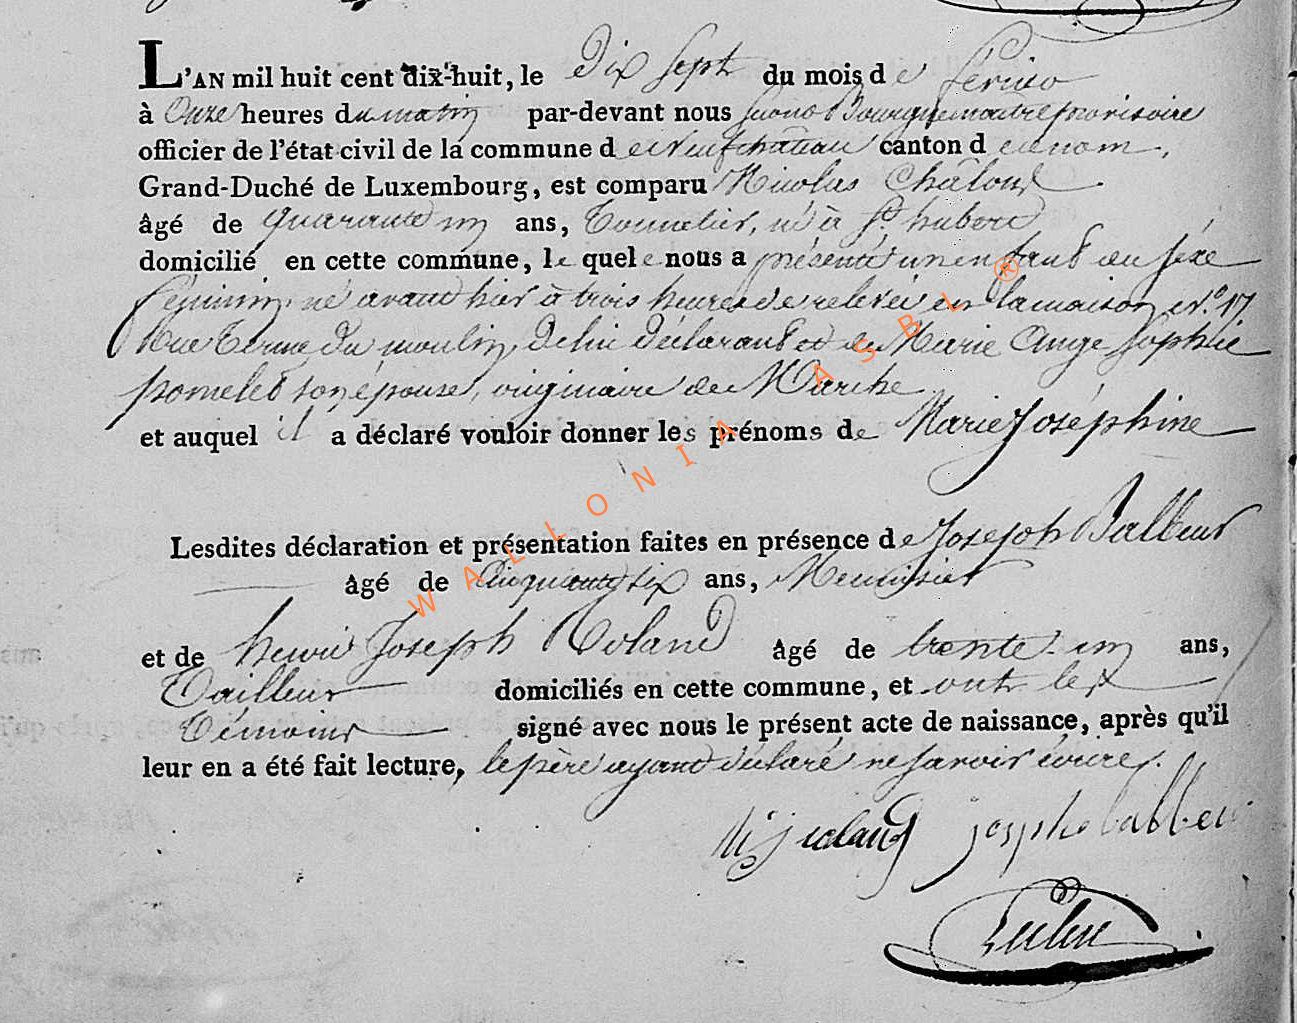 L'AN mil huit cent dix-huit, le Dix Sept du mois de février
à onze heures du matin par-devant nous Bourguemaitre provisoire
officier de l'état civil de la commune de Neufchâteau canton de ce nom,
Grand-Duché de Luxembourg, est comparu Nicolas
âgé de quarante un ans, Tonnelier, né à St. hubert
domicilié en cette commune, le quel nous a présenté un enfant du séxe
féminin né avant hier à trois heures de relevée en la maison N.° 17
Rue du moulin, De lui Déclarant et de Marie Ange Sophie
pomelet son épouse, originaire de Marche
et auquel il a déclaré vouloir donner les prénoms de Marie Joséphine
Lesdites déclaration et présentation faites en présence de Joseph Balbeur
âgé de Cinquante six ans, Menuisier
et de henri Joseph Roland âgé de trente un ans,
Tailleur domiciliés en cette commune, et ont les
Témoins signé avec nous le présent acte de naissance, après qu'il
leur en a été fait lecture, le père ayant déclaré ne savoir écrire.
joseph balbeur
WALLONIA ASBL ®